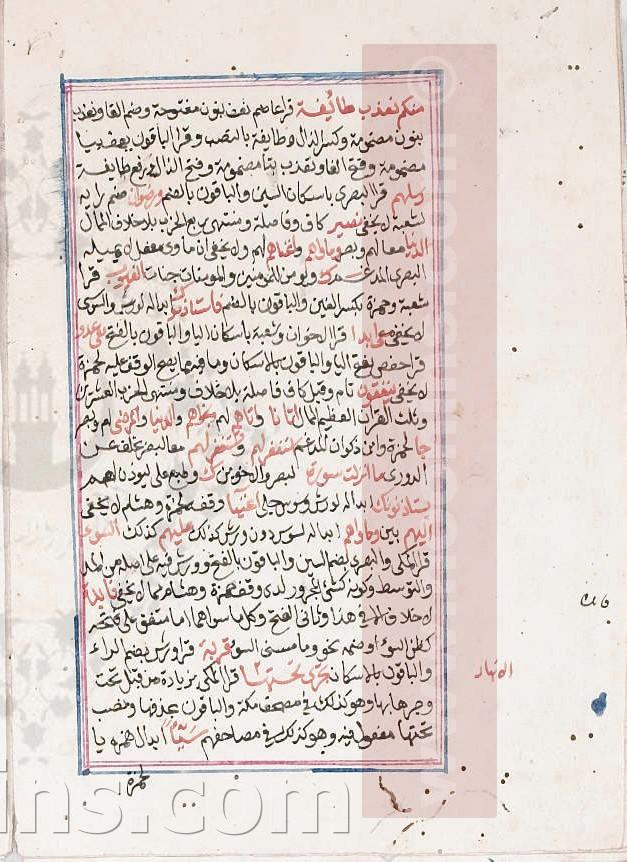 منكم نعذب طائفة قرا عاصم نعف بنون مفتوحة وضم الفا ونعذب
بنون مضمومة وكسر الذال وطايفة بالنصب وقرا الباقون يعف بيا
مضمومة وفتح الفا وتعذب بتا مضمومة وفتح الذال ورفع طايفة
رسلهم قرا البصري باسكان السين والباقون بالضم ورضوان ضم رايه
لشعبة لا يخفى نصير كاف وفاصلة ومنتهى ربع الحزب بلا خلاف الممال
الدنيا معا لهم وبصر وماواهم واغناهم لهم ولا يخفى ان ماوى مفعل لا يميله
البصري المدغم ويومن للمومنين والمومنات جنات الغيوب قرا
شعبة وحمزة بكسر الغين والباقون بالضم فاستاذنوك ابداله لورش والسوسي
لا يخفى معي ابدا قرا الاخوان وشعبة باسكان اليا والباقون بالفتح معي عدوا
قرا حفص بفتح اليا والباقون بالاسكان وما فيه مما يصح الوقف عليه لحمزة
لا يخفى ينفقون تام وقيل كاف فاصلة بلا خلاف ومنتهى الحزب العشرين
وثلث القران العظيم الممال اتانا واتاهم لهم ونجواهم والدنيا والمرضى لهم وبصر
جا لحمزة وابن ذكوان المدغم استغفر لهم وتستغفر لهم معا لبصر بخلف عن
الدوري انزلت سورة لبصر والاخوين وطبع على ليوذن لهم
يستاذنونك ابداله لورش وسوسي جلي اغنيا وقفه لحمزة وهشام لا يخفى
اليهم بين وماواهم ابداله لسوسي دون ورش كذلك عليهم كذلك السوء
قرا المكي والبصري بضم السين والباقون بالفتح وورش فيه على اصله من المد
والتوسط وكونه كشئ المجرور لدى وقف حمزة وهشام مما لا يخفى فايدة
لا خلاف في هذا وثاني الفتح وكل ما سواهما مما متفق على فتحه
كظن السوء او ضمه نحو وما مسني السوء قربة قرا ورش بضم الراء
والباقون بالاسكان تجري تحتها قرا المكي بزيادة من قبل تحت
وجرها بها وهو كذلك في مصحف مكة والباقون بحذفها ونصب
تحتها مفعول فيه وهو كذلك في مصاحفهم سيئا ابدال همزه يا
لحمزة
الانهار